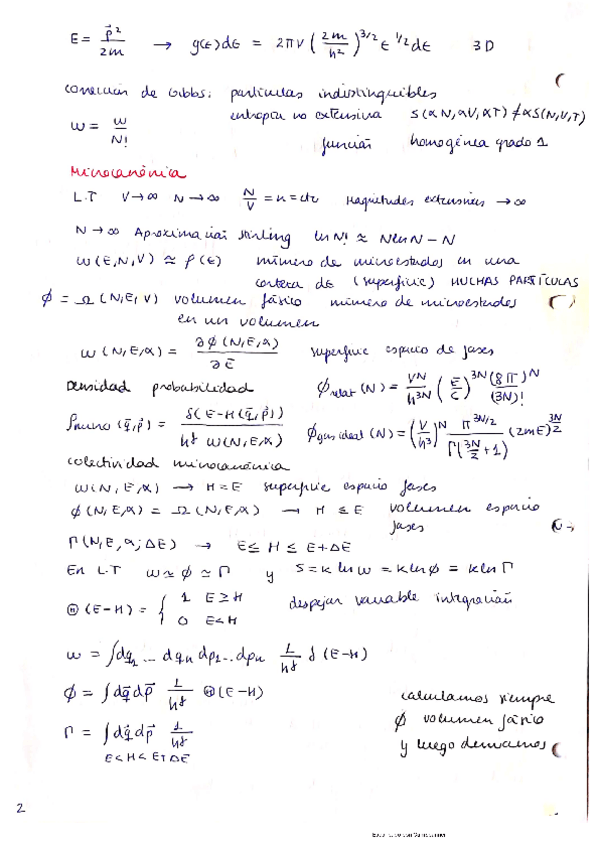 E = p⃗²/2m → g(ε)dε = 2πV (2m/h²)^3/2 ε^1/2 dε 3D
corrección de Gibbs: partículas indistinguibles
ω = ω/N! entropía no extensiva S(αN, αV, αT) ≠ αS(N,V,T)
función homogénea grado 1
Microcanónica
L.T V→∞ N→∞ N/V = n = cte Magnitudes extensivas → ∞
N→∞ Aproximación Stirling ln N! ≈ N ln N − N
ω(E,N,V) ≃ ρ(E) número de microestados en una
corteza de (superficie) MUCHAS PARTÍCULAS
ϕ = Ω(N,E,V) volumen fásico número de microestados
en un volumen
ω(N,E,α) = ∂ϕ(N,E,α)/∂E superficie espacio de fases
Densidad probabilidad ϕrelat(N) = V^N/h^3N (E/c)^3N (8π)^N/(3N)!
ρmicro(q⃗,p⃗) = δ(E−H(q⃗,p⃗))/h^f ω(N,E,α) ϕgas ideal(N) = (V/h³)^N π^3N/2/Γ(3N/2+1) (2mE)^3N/2
colectividad microcanónica
ω(N,E,α) → H=E superficie espacio fases
ϕ(N,E,α) = Ω(N,E,α) → H ≤ E volumen espacio
fases
Γ(N,E,α;ΔE) → E ≤ H ≤ E+ΔE
En L.T ω ≃ ϕ ≃ Γ y S = k ln ω = k ln ϕ = k ln Γ
Θ(E−H) = { 1 E≥H despejar variable integración
0 E<H
ω = ∫dq1 ... dqn dp1... dpn 1/h^f δ(E−H)
ϕ = ∫dq⃗ dp⃗ 1/h^f Θ(E−H) calculamos siempre
ϕ volumen fásico
Γ = ∫dq⃗ dp⃗ 1/h^f y luego derivamos
E<H<E+ΔE
2